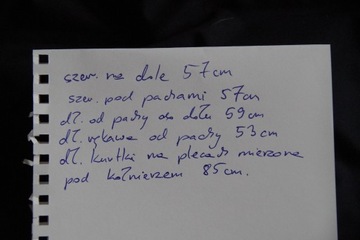 szer. na dole 57cm
szer. pod pachami 57cm
dł. od pachy do dołu 59cm
dł. rękawa od pachy 53cm
dł. kurtki na plecach mierzona
pod kołnierzem 85cm.